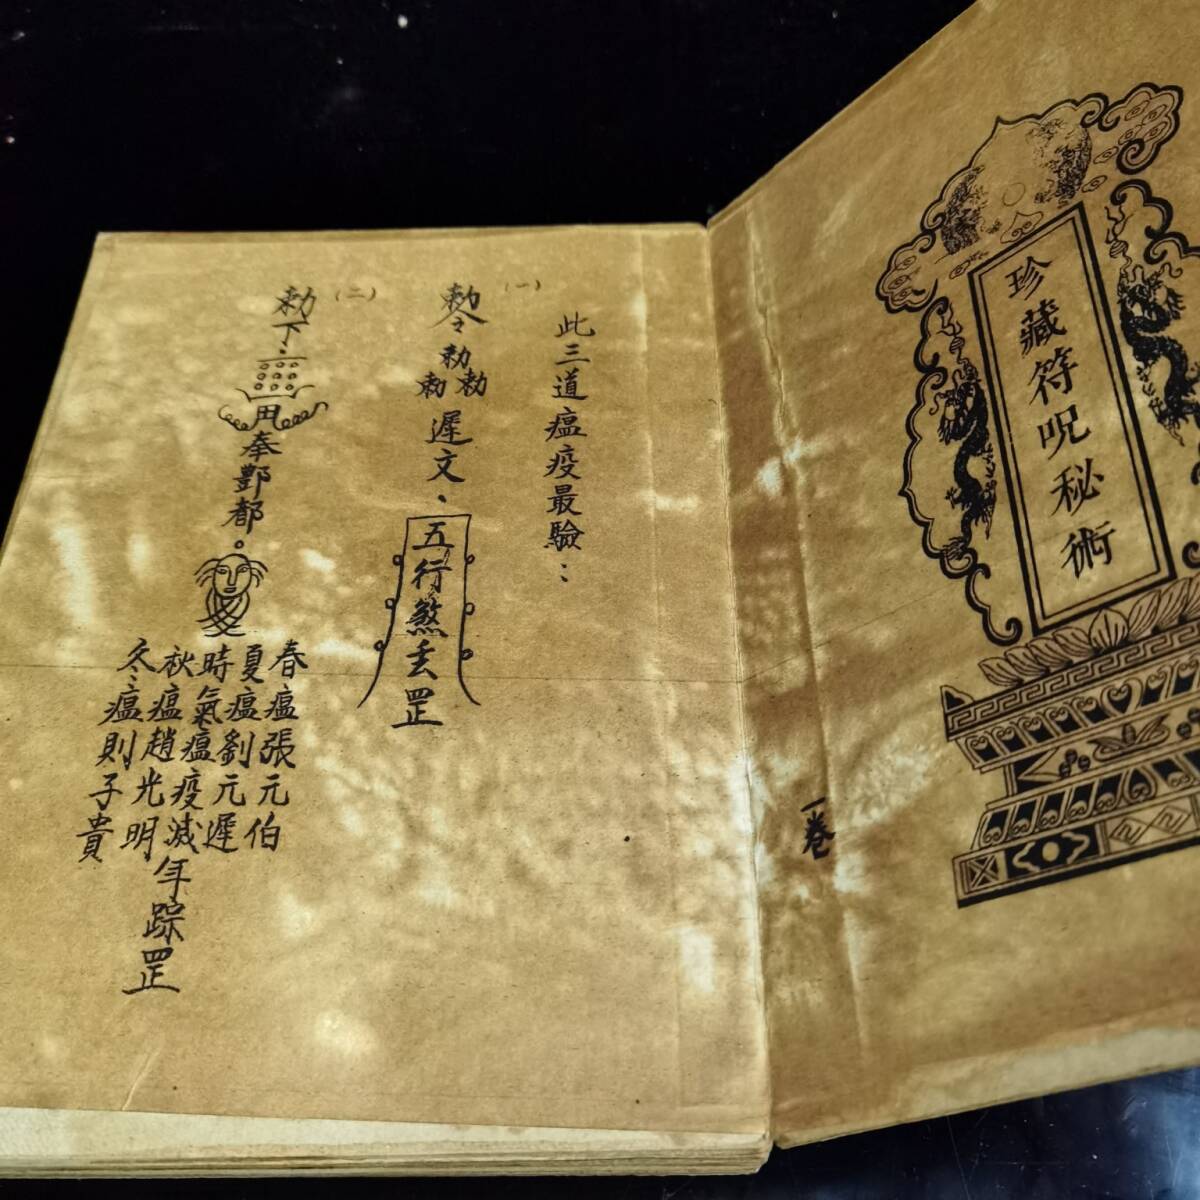 珍藏符呪秘術
一卷
此三道瘟疫最驗：
（一）
勅令勅勅勅遲文、五行煞丟罡
（二）
勅下奉酆都
春瘟張元伯
夏瘟劉元遲
時氣瘟疫滅年踪罡
秋瘟趙光明
冬瘟則子貴